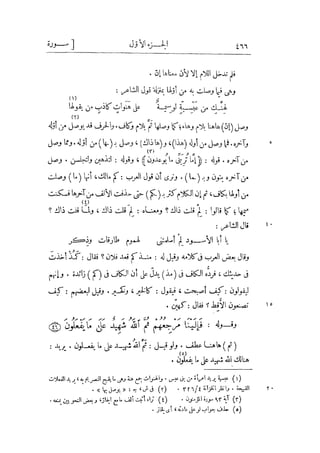 ٤٦٦ الجـــزء الأول [ ســـورة
فلم تدخل اللام إلا لأن معناها إنّ .
وهى فيما وصلت به من أوّلها بمنزلة قول الشاعر :
لَهِنَّــكِ من عَبْسِــيَّةٍ لَوسِيــمةٌ على هَنَواتٍ كاذبٍ من يقولها (١)
وصل (إنّ) هاهنا بلام وهاء، كما وصلها ثَمَّ بلام وكاف، والحرف قد يوصل من أوّله (٢)
وآخره. فما وصل من أوّله (هذا)، و(هاذاك)، وصل بـ (ها) من أوّله. ومما وصل
من آخره . قوله : ﴿إمّا تُرِيَنِّى ما يُوعدون﴾ ، وقوله : لتذهبن ولتجلسن . وصل (٣)
من آخره بنون و بـ (ما) . ونرى أن قول العرب : كم مالك، أنها (ما) وصلت
من أولها بكاف، ثم إن الكلام كثر بـ (كم) حتى حذفت الألف من آخرها فسكنت
ميمها؛ كما قالوا : لِمْ قلت ذاك ؟ ومعنـاه : لِمَ قلت ذاك ، ولِمَــا قلت ذاك ؟ (٤)
قال الشاعر :
يا أبا الأســـود لِمْ أسلمتنى لهمـوم طارقات وذِكَرْ
وقال بعض العرب فى كلامه وقيل له : منــذكم قعد فلان ؟ فقال : كَمُــذْ أخذتَ
فى حديثك ، فردُّه الكاف فى (مذ) يدلّ على أن الكاف فى (كم) زائدة . وإنهم
ليقولون : كيف أصبحت ، فيقول : كالخير ، وكخـير . وقيل لبعضهم : كيف
تصنعون الأَقِط ؟ فقال : كهَيِّن .
وقـــوله : ﴿فَإِلَيْنَا مَرْجِعُهُمْ ثُمَّ اللَّهُ شَهِيدٌ عَلَى مَا يَفْعَلُونَ ٤٦﴾
(ثم) هاهنا عطف . ولو قيــل : ثَمَّ اللهُ شهيــد على ما يفعــلون . يريد :
هنالك الله شهيد على ما يفعلون . (٥)
(٣) آية ٩٣ سورة المؤمنون .